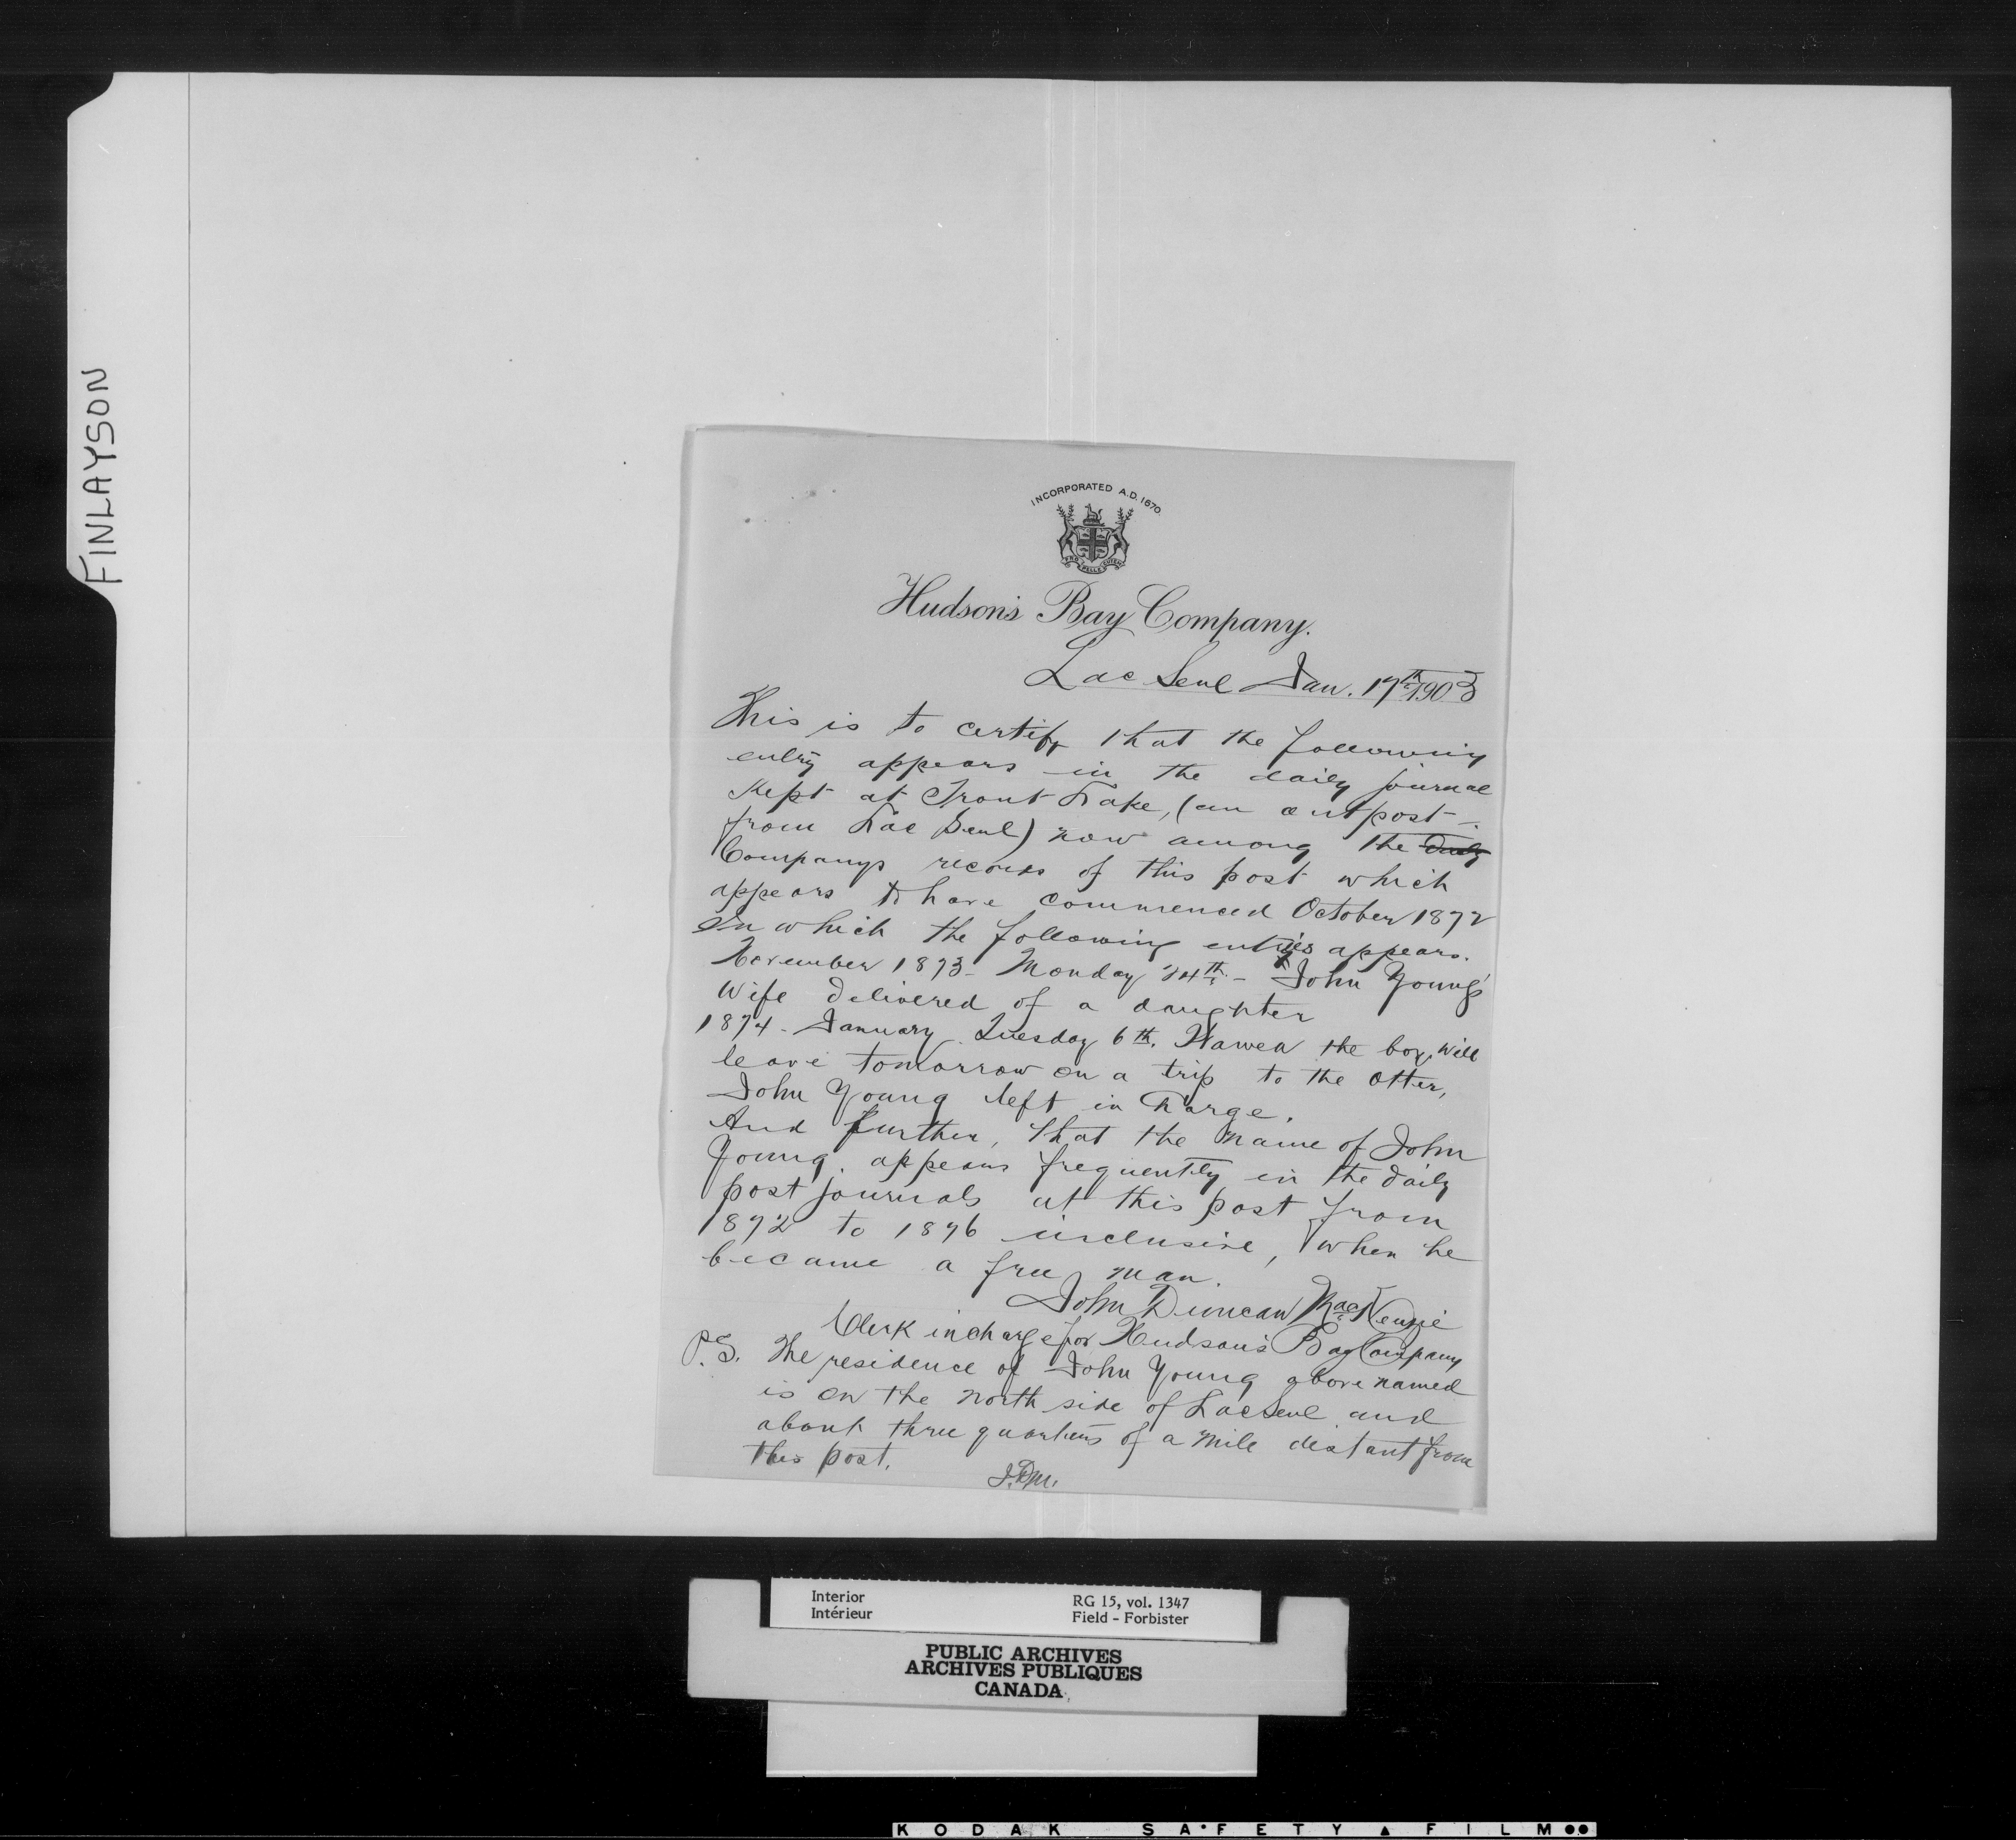 FINLAYSON
INCORPORATED A.D. 1670.
PRO PELLE CUTEM
Hudson's Bay Company.
Lac Seul Jan. 17th 1903
This is to certify that the following
entry appears in the daily journal
kept at Trout Lake, (an outpost
from Lac Seul) now among the daily
Companys records of this post which
appears to have commenced October 1872
In which the following entries appears.
November 1873 - Monday 24th - John Young's
Wife delivered of a daughter
1874 - January Tuesday 6th. the boy will
leave tomorrow on a trip to the Otter,
John Young left in charge.
And further, that the name of John
Young, appears frequently in the daily
post journals at this post from
1872 to 1876 inclusive, when he
became a free man.
John Duncan MacKenzie
Clerk in charge for Hudson's Bay Company
P.S. The residence of John Young above named
is on the north side of Lac Seul and
about three quarters of a mile distant from
this post.
J.D.M.
Interior
Intérieur
RG 15, vol. 1347
Field - Forbister
PUBLIC ARCHIVES
ARCHIVES PUBLIQUES
CANADA
KODAK SAFETY FILM